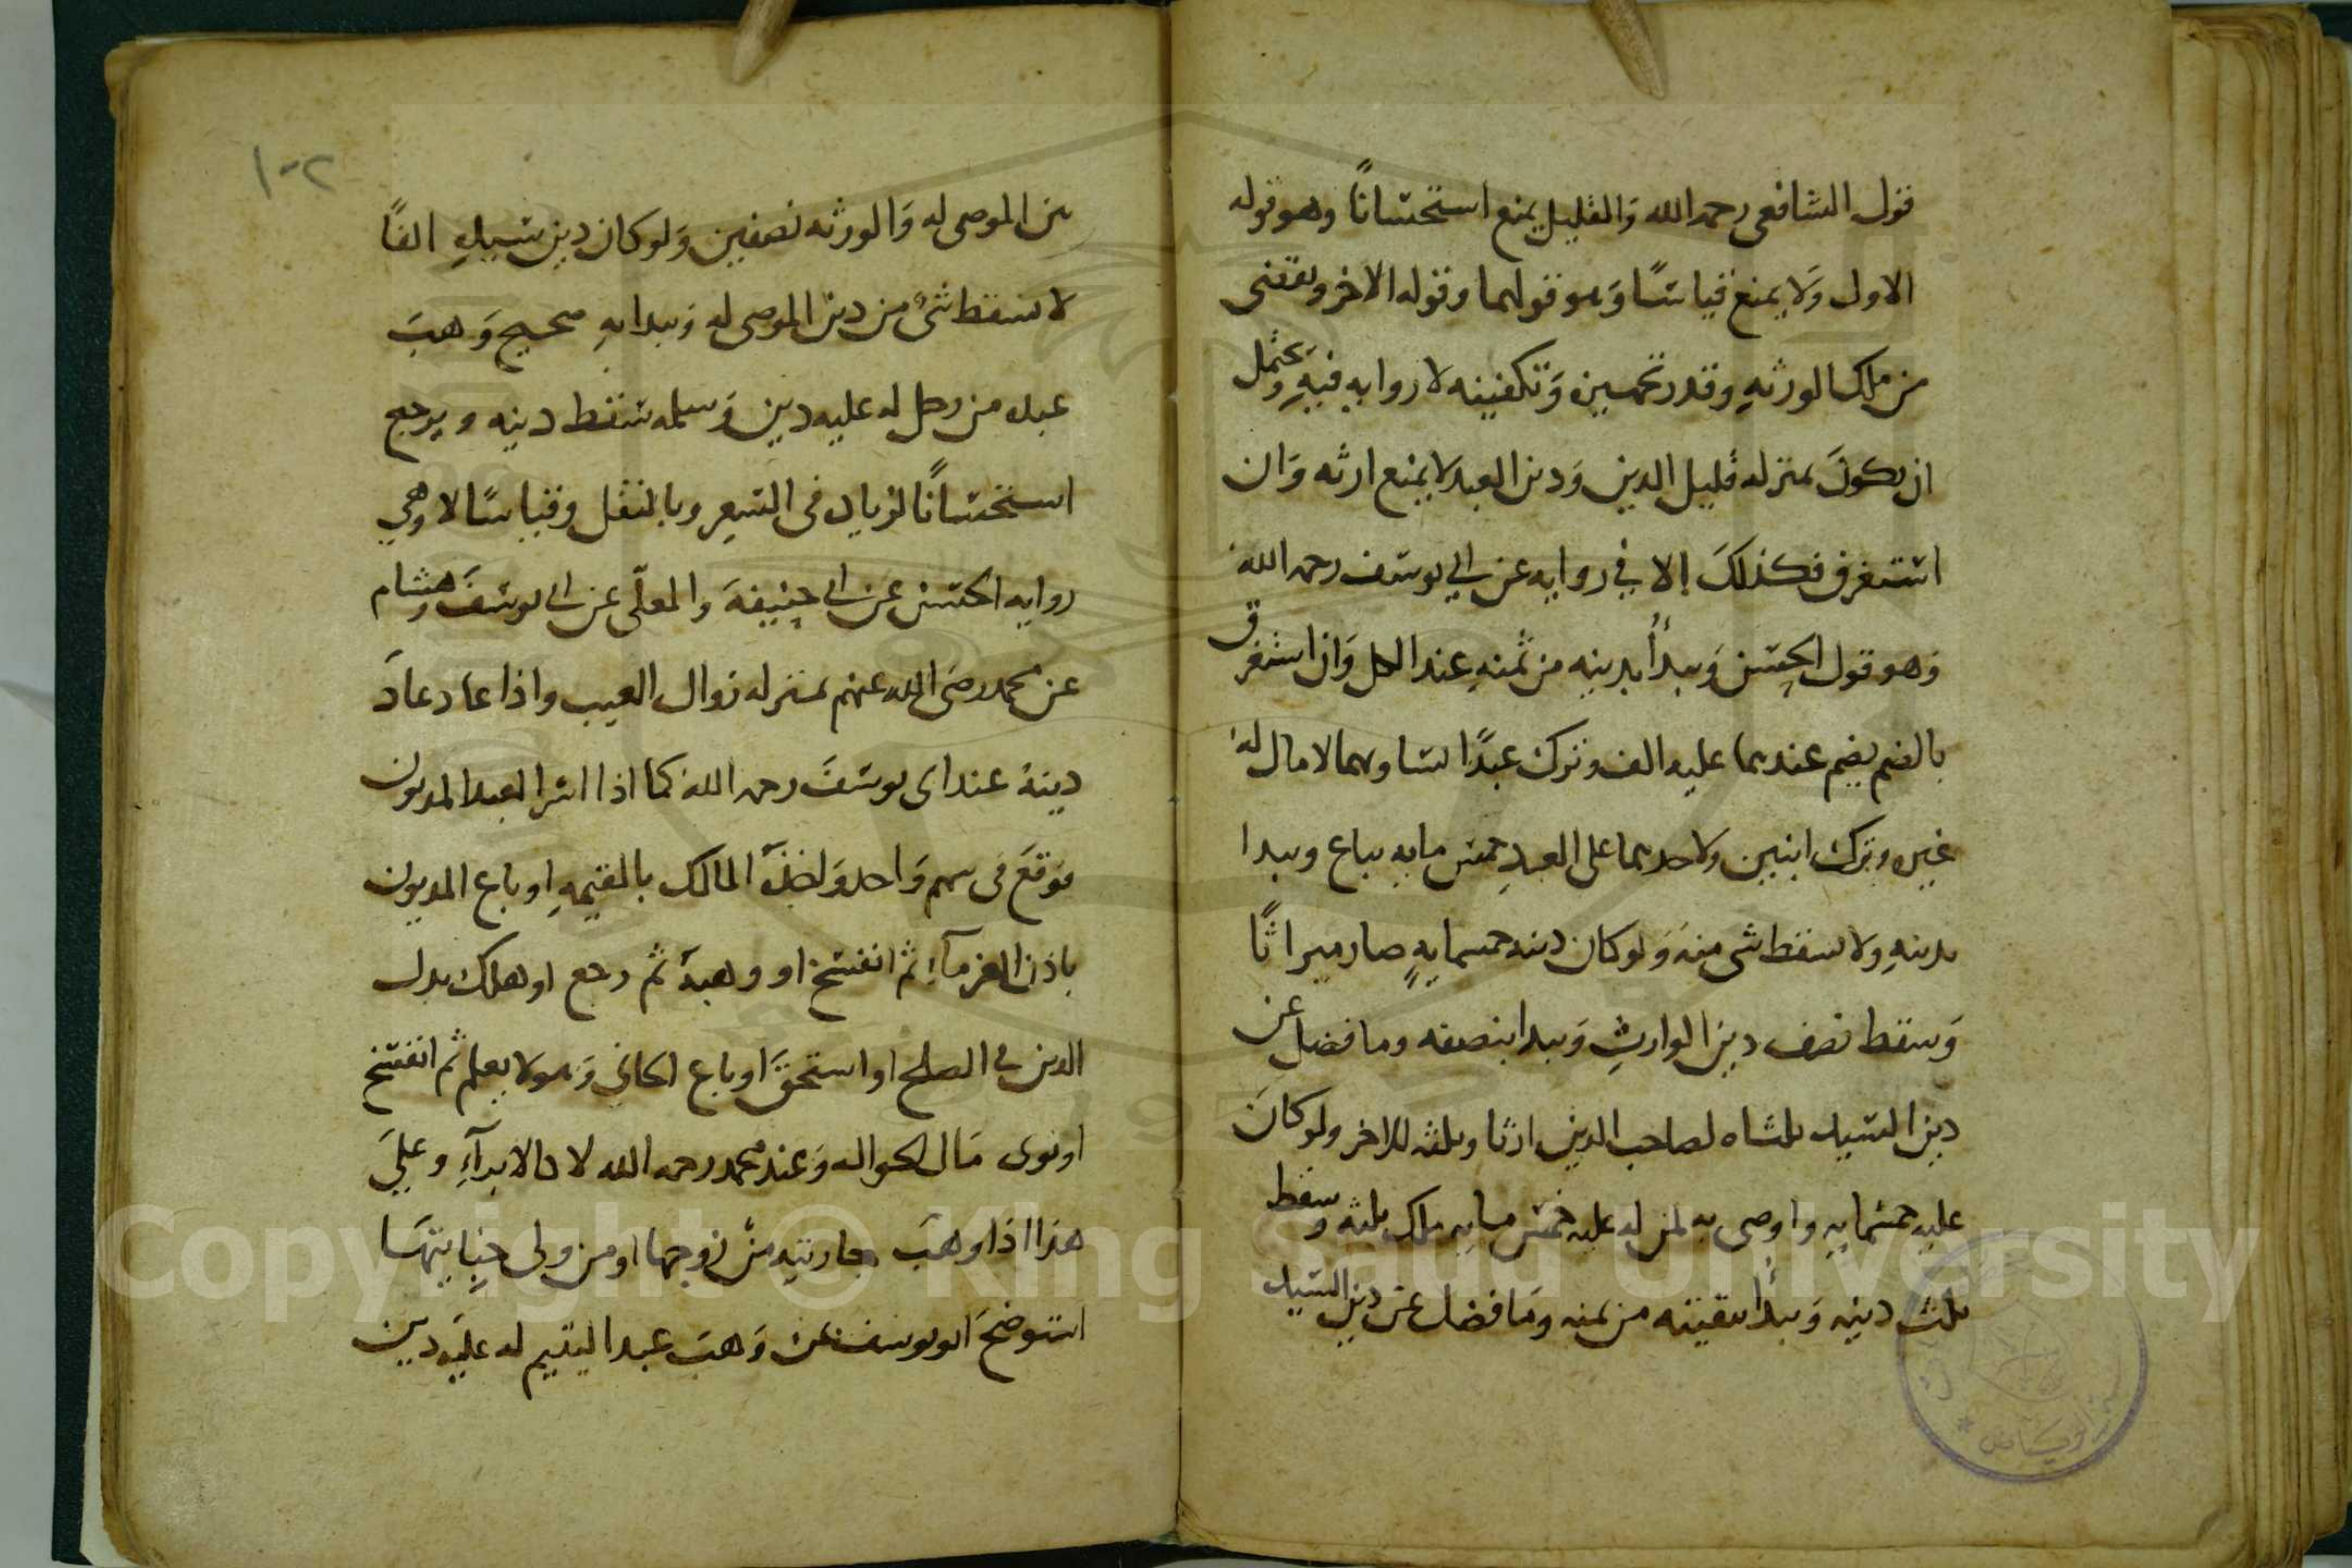 قول الشافعي رحمه الله وَالقليل يمنع استحسانًا وهو قوله
الاول وَلا يمنع قياسًا وَهو قولهما وقوله الاخر ويقضى
من ملك الورثهِ وقدر تجهيزه وَتكفينه لا روايه فيهِ وَيحتمل
ان يكونَ بمنزله قليل الدين وَدين العبد لا يمنع ارثه وَان
استغرق فكذلكَ إلا في روايه عن ابي يوسف رحمه الله
وَهو قول الحسن وَيبدأ بدينه من ثمنهِ عند الكل وَان استغرق
بالضم يضم عندهما عليه الف وترك عبدًا يساويهما لا مال له
غيره وترك ابنين ولاحدهما على العبدِ خمس مايه يباع ويبدا
بدينهِ ولا يسقط شى منه وَلو كان دينه خمسمايهٍ صار ميراثًا
وَسقط نصف دين الوارثِ وَيبدا بنصفه وما فضل عن
دين السيد ثلثاه لصاحب الدين ارثا وثلثه للاخر ولو كانَ
عليه خمسمايه واوصى به لمن له عليه خمس مايه ملك ثلثه وَسقط
ثلث دينه وَيبدأ ببقيته من ثمنه وَما فضل عن دين السيد
بين الموصى له وَالورثه نصفين وَلو كان دين سيدهِ الفًا
لا يسقط شئ من دين الموصى له وَيبدا بهِ صحيح وَهبَ
عبده من رجل له عليه دين وَسلمه سقط دينه ويرجع
استحسانًا لزياده فى السعرِ وبالنقل وقياسًا لا وَهي
روايه الحسن عن ابي حنيفهَ والمعلّى عن ابي يوسفَ وَهشام
عن محمد رضى الله عنهم بمنزله زوال العيب واذا عاد عادَ
دينهُ عند ابى يوسفَ رحمه الله كما اذا اسر العبد المديون
فوقعَ فى سهم وَاحد وَاخذهُ المالك بالقيمهِ او باع المديون
باذن الغرمآءِ ثم انفسخ او وهبهُ ثم رجع او هلك بدل
الدين في الصلح او استحقَ او باع الجاني وَهو لا يعلم ثم انفسخ
او توى مَال الحواله وَعند محمد رحمه الله لا كالابرآءِ وعلىَ
هذا اذا وهبَ جاريته منْ زوجها او من ولى جنايتهَا
استوضحَ ابو يوسف عن وَهبَ عبدا ليتيم له عليَه دين